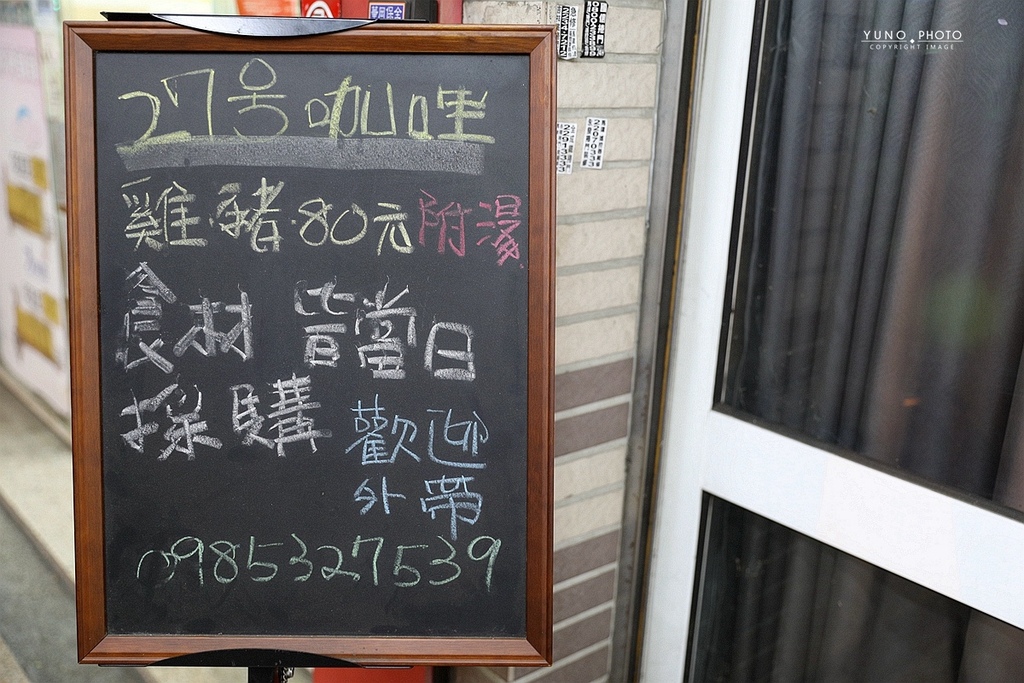 YUNO PHOTO
COPYRIGHT IMAGE
27号咖哩
雞.豬.80元附湯
食材 皆當日
採購
歡迎
外帶
0985327539